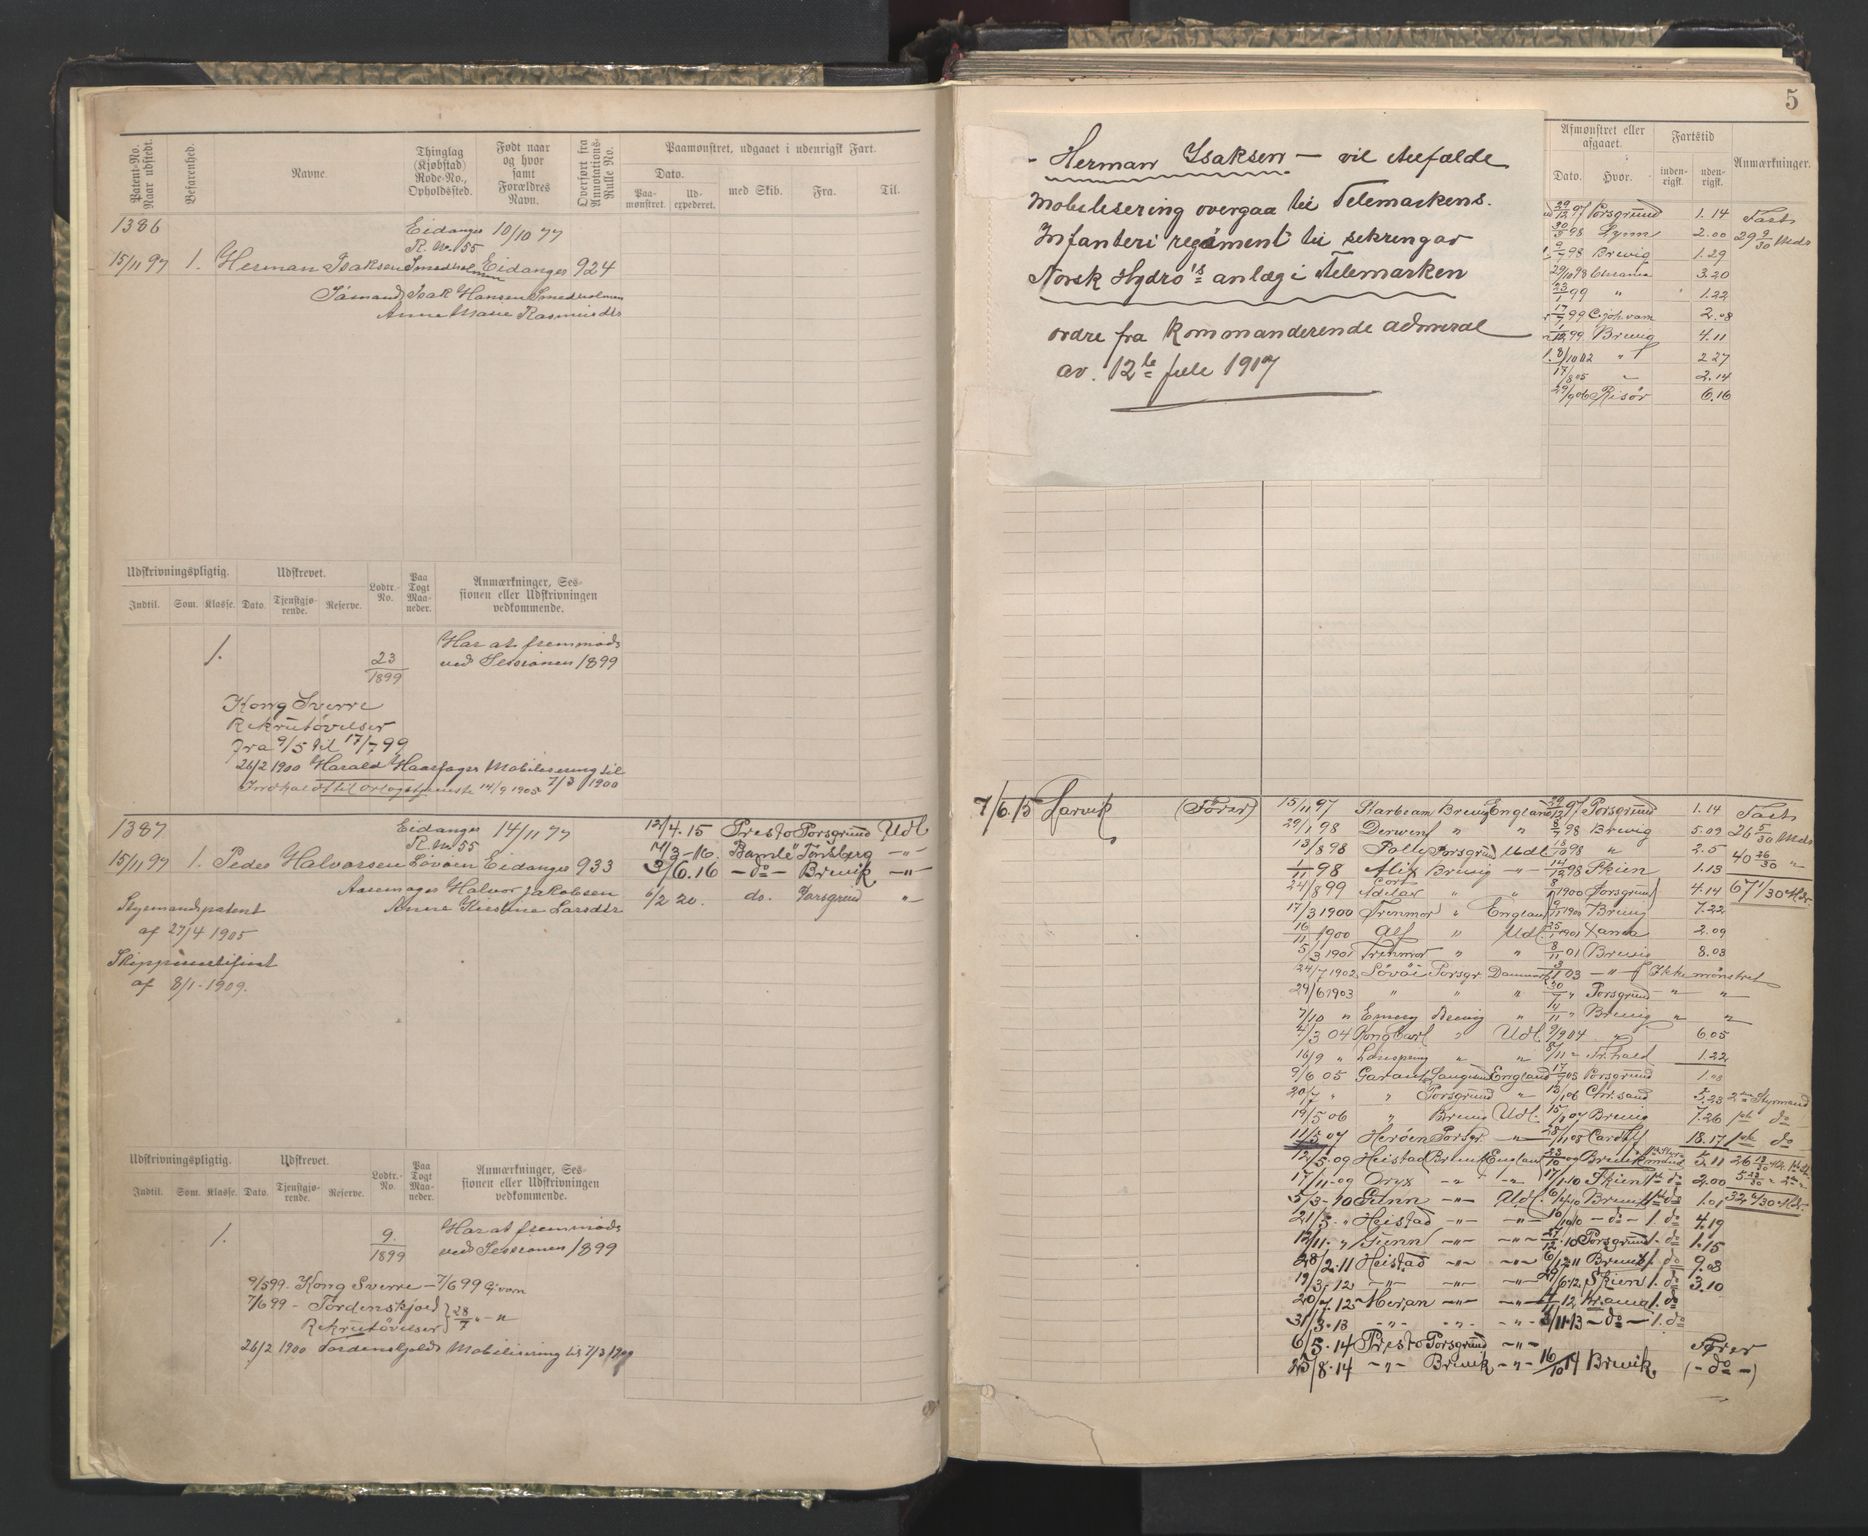 Patent-No. Naar udstedt.
Befarenhed.
Navne.
Thinglag (Kjøbstad) Rode-No., Opholdssted.
Født naar og hvor samt Forældres Navn.
Overført fra Annotations-Rulle No.
Paamønstret, udgaaet i udenrigsk Fart.
Dato.
Paa-mønstret.
Ud-expederet.
med Skib.
Fra.
Til.
1386
Eidanger 10/10 77
R. No. 55
15/11 97 1. Herman Isaksen Smedholmen Eidanger 924
Isak Hansen Smedholmen
Anne Marie Rasmusdtr
Udskrivningspligtig.
Udskrevet.
Lodtr.-No.
Paa Togt Maa-neder.
Anmærkninger, Ses-sionen eller Udskrivningen vedkommende.
Indtil. Som. Klasse. Dato. Tjenstgjø-rende. Reserve.
1. 23/1899 Har at fremmøde
ved Sessionen 1899
Kong Sverre
Rekrutøvelser
fra 9/5 til 17/7 99
26/2 1900 Harald Haarfager Mobilisering til 7/3 1900
14/9 1905
1387
Eidanger 14/11 77
R. No. 55
12/4.15 Presto Porsgrund Udl
14/3-16. Bamle Tønsberg -"-
15/11 97 1. Peder Halvorsen Løvøen Eidanger 933 3/6.16 -do- Brevik -"-
Halvor Jakobsen
6/2 20. do. Porsgrund "
Anne Kirstine Larsdtr
Styrmandspatent
af 27/4 1905
af 8/1-1909.
Udskrivningspligtig.
Udskrevet.
Lodtr.-No.
Paa Togt Maa-neder.
Anmærkninger, Ses-sionen eller Udskrivningen vedkommende.
Indtil. Som. Klasse. Dato. Tjenstgjø-rende. Reserve.
1. 9./1899 Har at fremmøde
ved Sessionen 1899
9/5 99. Kong Sverre - 7/6 99
7/6 99 - Tordenskjold
Rekrutøvelser 28/7 "-"
26/2 1900 Tordenskjold Mobilisering til 7/3 1900
5
- Herman Isaksen - vil tilfælde
mobilisering overgaa til Telemarkens.
Infanteri regiment til sikring av
Norsk Hydro's anlæg i Telemarken
ordre fra kommanderende admiral
av. 12te juli 1917
Afmønstret eller afgaaet.
Fartstid
Anmærkninger.
Dato. Hvor. inden-rigsk. uden-rigsk.
29/12 97 Porsgrund 1.14
30/5 98 2.00 29 9/30 Mds
9/7 98 Brevig 1.29
29/10 98 3.20
23/1 99 " 1.22
17/7 99 2.08
1/12 99 Brevig 4.11
8/10 02 " 2 27
17/8 05 " 2.14
29/9 06 Risör 6.16
7/6.15 Larvik (Fører) 15/11 97 Brevig England 29/12 97 Porsgrund 1.14
29/1 98 Derwent " " 8/7 98 Brevig 5.09 26 5/30 Mds
13/8 98 Porsgrund Udl 18/10 98 " 2.5
1/11 98 Alix Brevig -"- 14/12 98 Skien 1.13 40 26/30 "
24/8 99 " " 8/1 1900 Porsgrund 4.14 67 1/30 Mdr.
17/3 1900 Trenmor " England 9/11 1900 Brevig 7.22
16/11 1900 Alf " Udl 25/1 1901 2.09
5/3 1901 Trenmor " " 8/11 01 Brevig 8.03
24/7 1902 Løvöi Porsgr. Danmark 3/1 03 -"- Ikke mønstret
29/6 1903 " " " 30/7 " Porsgrund -"- "
7/10 " Emery Brevig " 14/11 " Brevig " "
4/3 04 Kong Carl " Udl 9/9 04 " 6.05
16/9 " " " 8/11 " Fr.hald 1.22
9/6 05 Garant Langesund England 17/7 05 Porsgrund 1.08
20/7 " " Porsgrund " 13/1 06 Chr.sand 5.23 2den Styrmand
19/5 06 " Brevig Udl. 15/1 07 Brevig 7.26 do
11/5 07 Herøen Porsgr. -"- 28/11 08 Cardiff 18.17 do
12/5-09 Heistad Brevik England 23/10 09 Brevik 5.11
17/11-09 Oryx -"- -"- 17/1-10 Skien 1. do 2.00
5/3-10 Gunn -"- Udl. 6/4 10 Brevik 1. do 1.01 32 6/30 Mdr.
21/5-" Heistad -"- -"- 10/10 10 -do- 1. do 4.19
12/11-" Gunn -"- -"- 27/12-10 Porsgrund 1. do 1.15
28/2.11 Heistad -"- -"- 6/12 11 Brevik 1. do 9.08
19/3.12 -"- -"- -"- 29/6 12 Skien 1. do 3.10
20/7.12 Meran -"- -"- 12 Kr.ania 1. do
31/3-13 -"- -"- -"- 3/11-13 -do- 1. do
6/5.14 Presto Porsgrund -"- Fører
25/8.14 -"- Brevik -"- 16/10 14 Brevik (-do-)